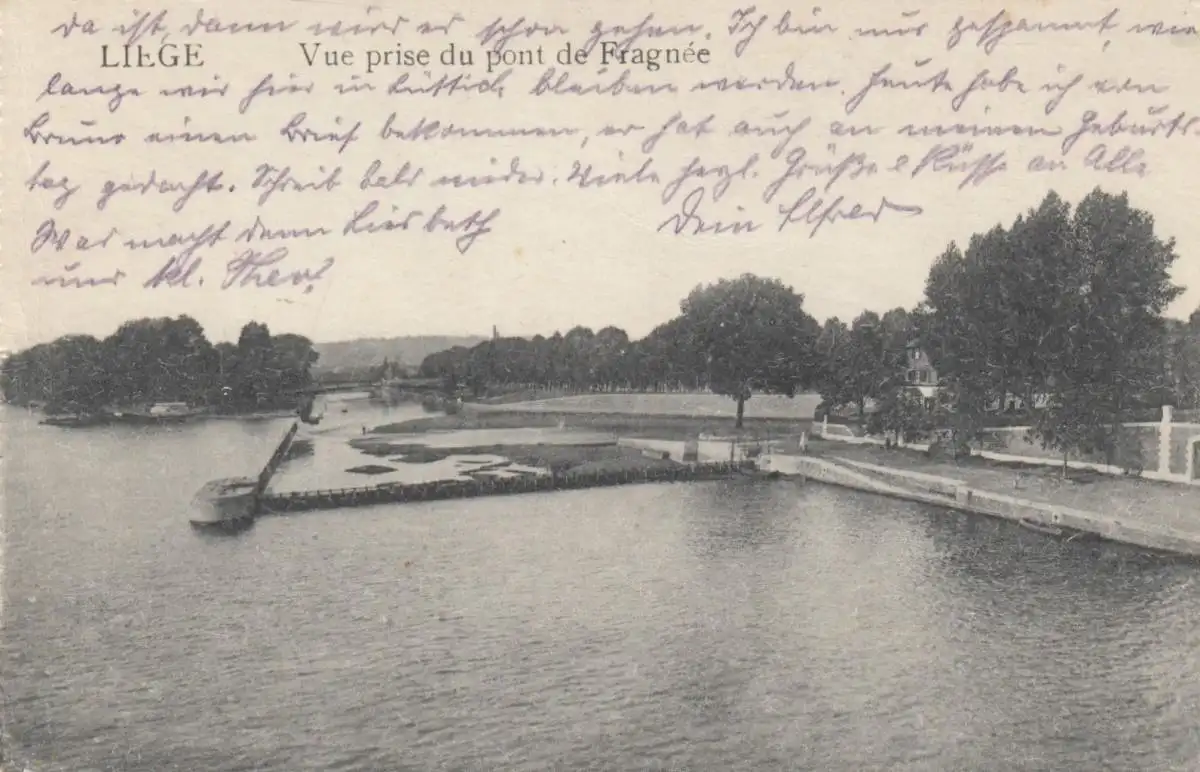 da ist, dann wird es schon gehen. Ich bin nur gespannt, wie
LIEGE Vue prise du pont de Fragnée
lange wir hier in Lüttich bleiben werden. Heute habe ich von
Bruno einen Brief bekommen, er hat auch an meinen Geburts
tag gedacht. Schreib bald wieder. Viele herzl. Grüße & Küsse an Alle
Was macht denn Liesbeth Dein Alfred
und kl. Theo?